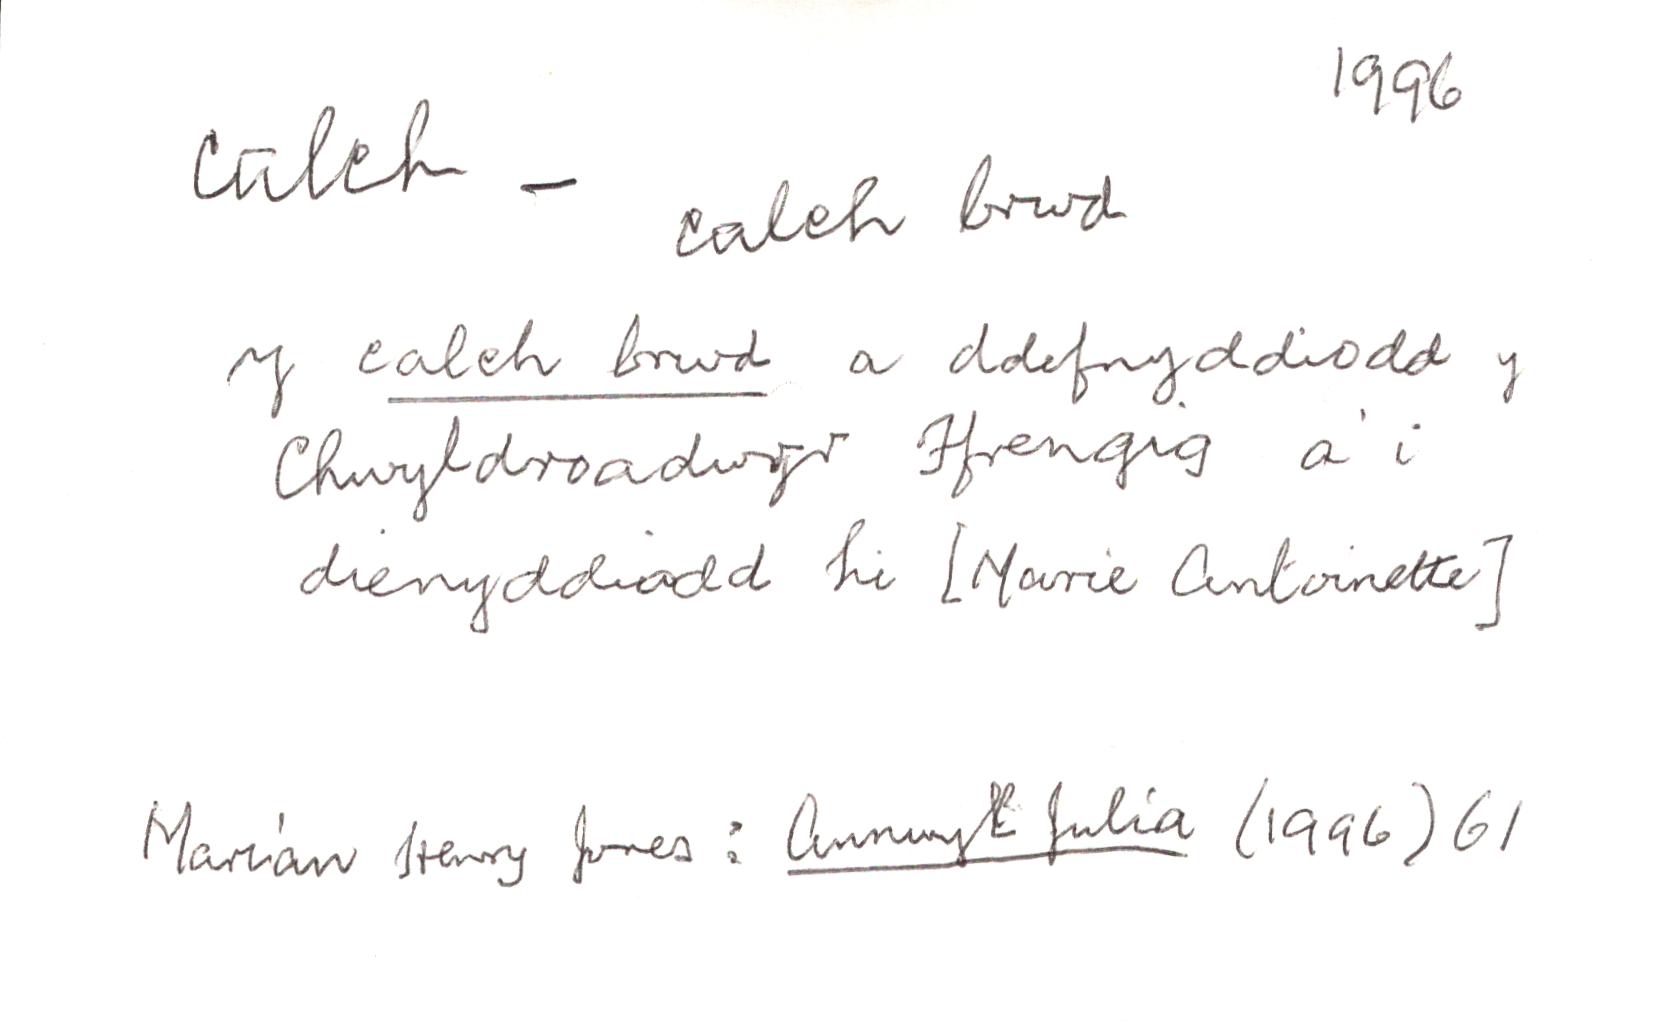 1996
calch -
calch brwd
y calch brwd a ddefnyddiodd y
Chwyldroadwyr Ffrengig a'i
dienyddiodd hi [Marie Antoinette]
Marian Henry Jones : Annwyl Julia (1996) 61